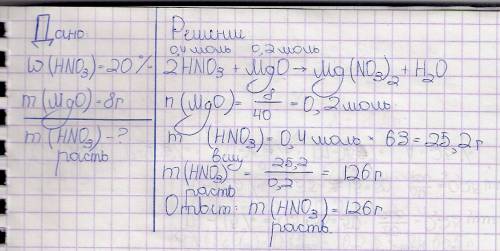 Дано:
ω(HNO₃)=20%
m(MgO)=8г
m(HNO₃)-?
раств
Решение
0,4моль 0,2моль
2HNO₃+MgO→Mg(NO₃)₂+H₂O
n(MgO)=8/40=0,2моль
m (HNO₃)=0,4моль*63=25,2г
в-щу
m(HNO₃)=25,2/0,2=126г
раств
Ответ: m(HNO₃)=126г
раств.